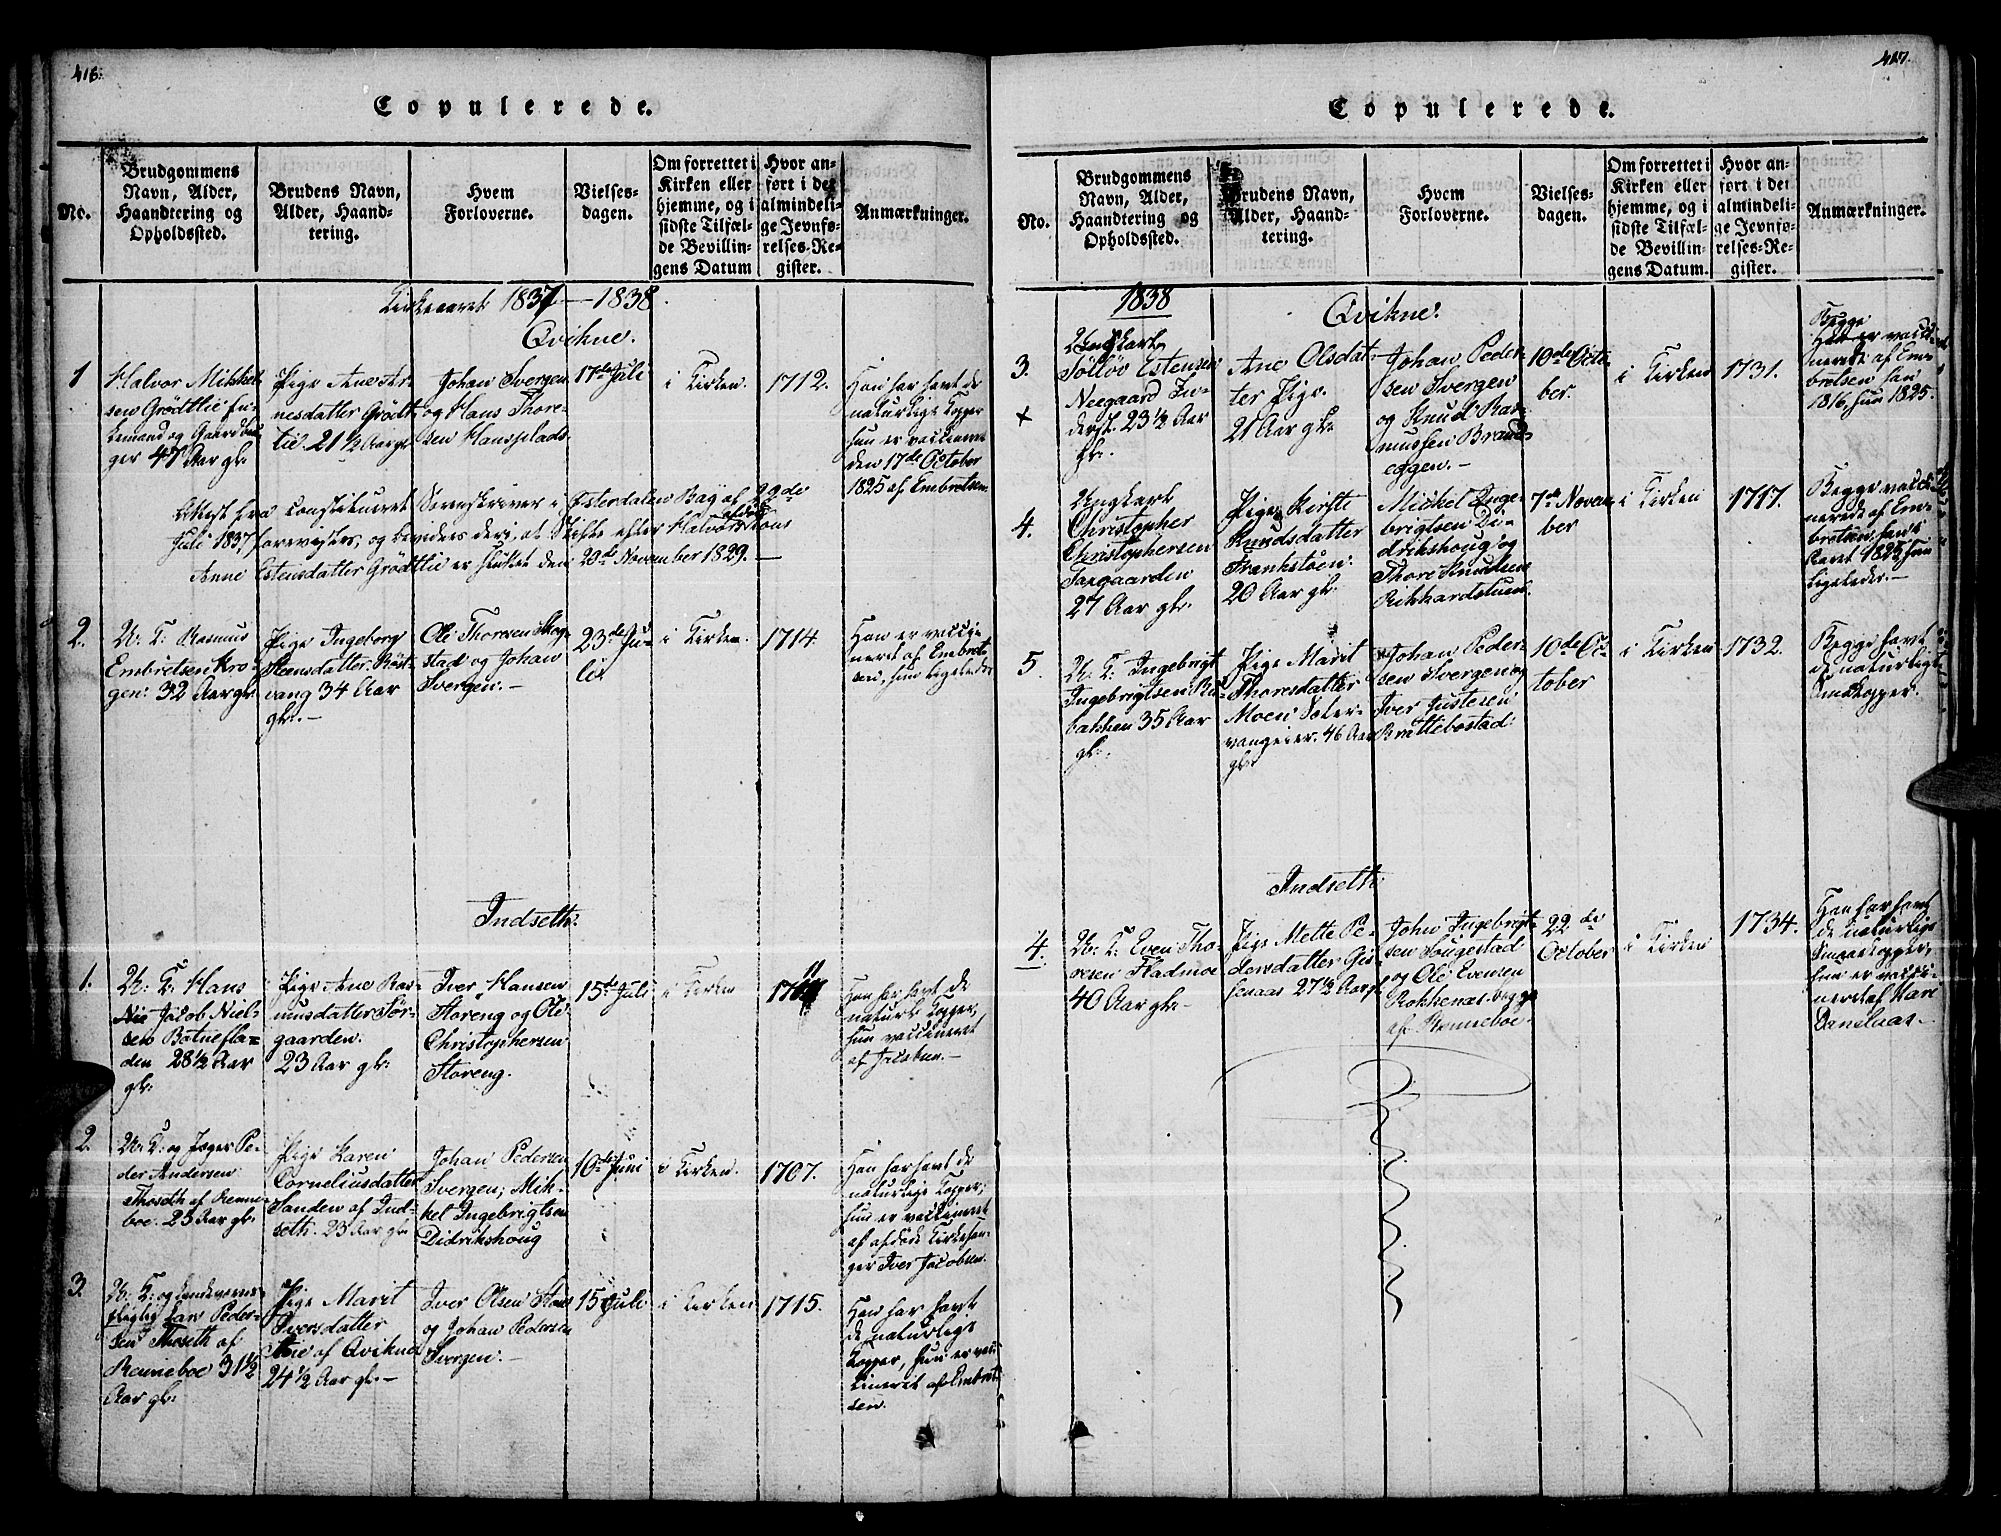 416.
Copulerede.
No.
Brudgommens
Navn, Alder,
Haandtering og
Opholdssted.
Brudens Navn,
Alder, Haand-
tering.
Hvem
Forloverne.
Vielses-
dagen.
Om forrettet i
Kirken eller
hjemme, og i
sidste Tilfæl-
de Bevillin-
gens Datum
Hvor an-
ført i det
almindeli-
ge Jevnfø-
relses-Re-
gister.
Anmærkninger.
Kirkeaaret 1837 — 1838.
Qvikne.
1
Halvor Mikkel-
sen Grödtlie En-
kemand og Gaardbru-
ger 47 Aar gl.
Pige Ane Ar-
nesdatter Grödt-
lie. 21 1/2 Aar gl.
Johan Svergen
og Hans Thore-
sen Hansplads
17de Juli
i Kirken.
1712.
Han har havt de
naturlige Kopper
hun er vaccineret
den 17de October
1825 af Embretsen.
Attest fra constitueret Sorenskriver i Österdalen Bay af 29de
Juli 1837 forevistes, og kvideres deri, at Skifte efter Halvors Kone
Anne Estensdatter Grödtlie er sluttet den 20de November 1829. —
2.
U: K: Rasmus
Embretsen Kro-
gen: 32 Aar gl.
Pige Ingeborg
Steensdatter Röst-
vang 34 Aar
gl. -
Ole Thoresen Skog-
stad og Johan
Svergen. -
23de Ju-
li
i Kirken.
1714
Han er vacci-
neret af Embret-
sen, hun ligeledes
Indseth:
1.
U: K: Hans
Jacob Niel-
sen Botnefla-
den 28 1/2 Aar
gl:
Pige Ane Ras-
musdatter Tör-
gaarden.
23 Aar gl:
Iver Hansen
Storeng og Ole
Christophersen
Storeng.
15de Juli
i Kirken
1711
Han har havt de
naturl. Kopper,
hun vaccineret
af Jacobsen. -
2.
U: K: og Jæger Pe-
der Andersen
Thoseth af Renne-
boe. 23 Aar gl.
Pige Karen
Corneliusdatter
Sanden af Ind-
seth. 23 Aar gl.
Johan Pedersen
Svergen; Mik-
kel Ingebrigtsen
Didrikshoug
10de Juni
i Kirken.
1707.
Han har havt de
naturlige Kopper;
hun er vaccineret
af afdöde Kirkesan-
ger Iver Jacobsen.
3.
U: K: og Landeværns-
pligtig Lars Peder-
sen Thoseth af
Renneboe 31 1/2
Aar gl:
Pige Marit
Iversdatter
Stoe af Qvikne
24 1/2 Aar gl. -
Iver Olsen Stoe
og Johan Pedersen
Svergen. -
15 Juli
i Kirken
1715.
Han har havt
de naturlige
Kopper, hun er vac-
cineret af Embret-
sen.
417.
Copulerede.
No.
Brudgommens
Navn, Alder,
Haandtering og
Opholdssted.
Brudens Navn,
Alder, Haand-
tering.
Hvem
Forloverne.
Vielses-
dagen.
Om forrettet i
Kirken eller
hjemme, og i
sidste Tilfæl-
de Bevillin-
gens Datum.
Hvor an-
ført i det
almindeli-
ge Jevnfø-
relses-Re-
gister.
Anmærkninger.
1838
Qvikne.
3.
x
Ungkarl
Tölløv Estensen
Neegaard In-
derst. 23 1/2 Aar
gl.
Ane Olsdat-
ter Pige.
21 Aar gl:
Johan Peder-
sen Svergen
og Knud Ras-
mussen Brands-
eggen. -
10de Octo-
ber.
i Kirken
1731.
Begge
er vacci-
nerede af Em-
bretsen han
1816, hun 1825.
4.
Ungkarl
Christopher
Christophersen
Tørgaarden
27 Aar gl.
Pige Kirsti
Knudsdatter
Frankstöen.
20 Aar gl.
Mickel Inge-
brigtsen Di-
drikshoug og
Thore Knudsen
Rikkardstuen.
7de Novem-
ber
i Kirken
1717.
Begge vacci-
nerede af Em-
bretsen, han i
Aaret 1825 hun
ligeledes. -
5.
U: K: Ingebrigt
Ingebrigtsen
bakken 35 Aar
gl:
Pige Marit
Thoresdatter
Moen Sæter-
vangeier. 46 Aar
gl:
Johan Peder-
sen Svergen og
Iver Justesen
Brattebostad:
10de Oc-
tober
i Kirken
1732.
Begge havt
de naturlige
Smaakopper.
Indseth:
4.
U: K: Even Tho-
resen Fladmoe
40 Aar gl. -
Pige Mette Pe-
dersdatter Gis-
senaas 27 1/2 Aar gl.
John Ingebrigt-
sen Sougestad
og Ole Evensen
Rokkenæs begge
af Renneboe.
22de
October
i Kirken
1734.
Han har havt
de naturlige
Smaakopper,
hun er vacci-
neret af Hans
Danelaas. -